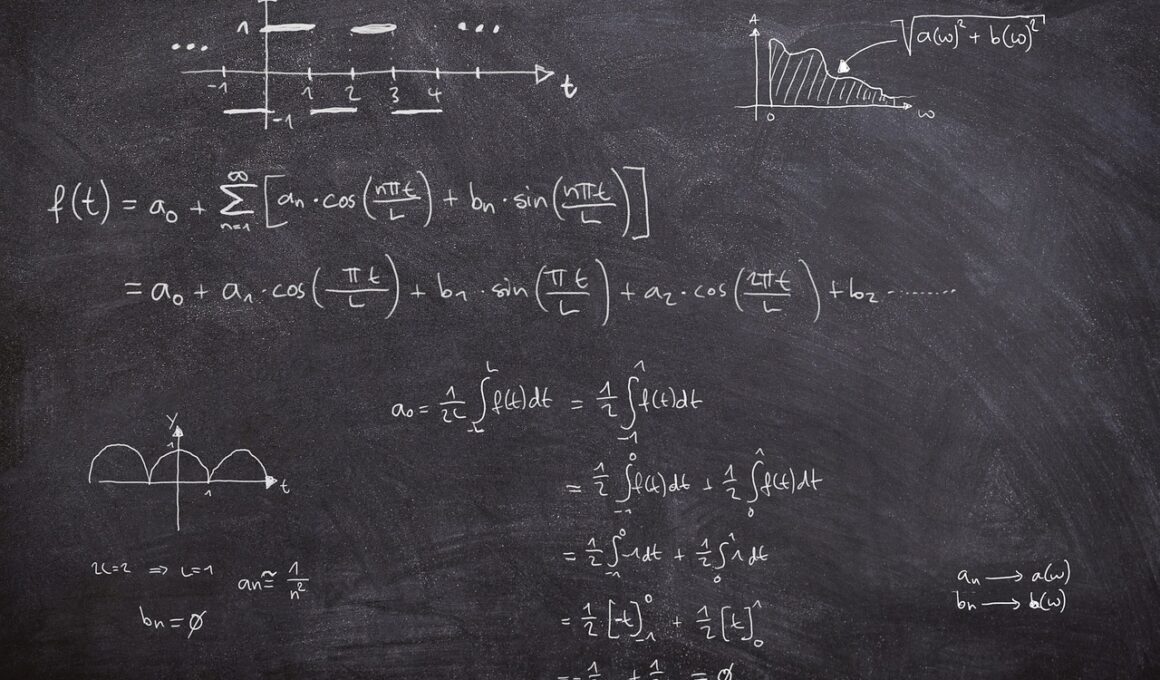 1
... ...
-1 1 2 3 4 t
-1
A
√a(ω)² + b(ω)²
0 ω
f(t) = a₀ + ∑ₙ₌₁^∞ [aₙ · cos(nπt/L) + bₙ · sin(nπt/L)]
= a₀ + a₁ · cos(πt/L) + b₁ · sin(πt/L) + a₂ · cos(2πt/L) + b₂ ........
a₀ = 1/2L ∫₋L^L f(t)dt = 1/2 ∫₋₁^1 f(t)dt
= 1/2 ∫₋₁^0 f(t)dt + 1/2 ∫₀^1 f(t)dt
= 1/2 ∫₋₁^0 -1dt + 1/2 ∫₀^1 1dt
= 1/2 · [-t]₋₁^0 + 1/2 [t]₀^1
= -1/2 + 1/2 = ∅
y
1
1 t
2L=2 ⇒ L=1 aₙ ≅ 1/n²
bₙ = ∅
aₙ → a(ω)
bₙ → b(ω)